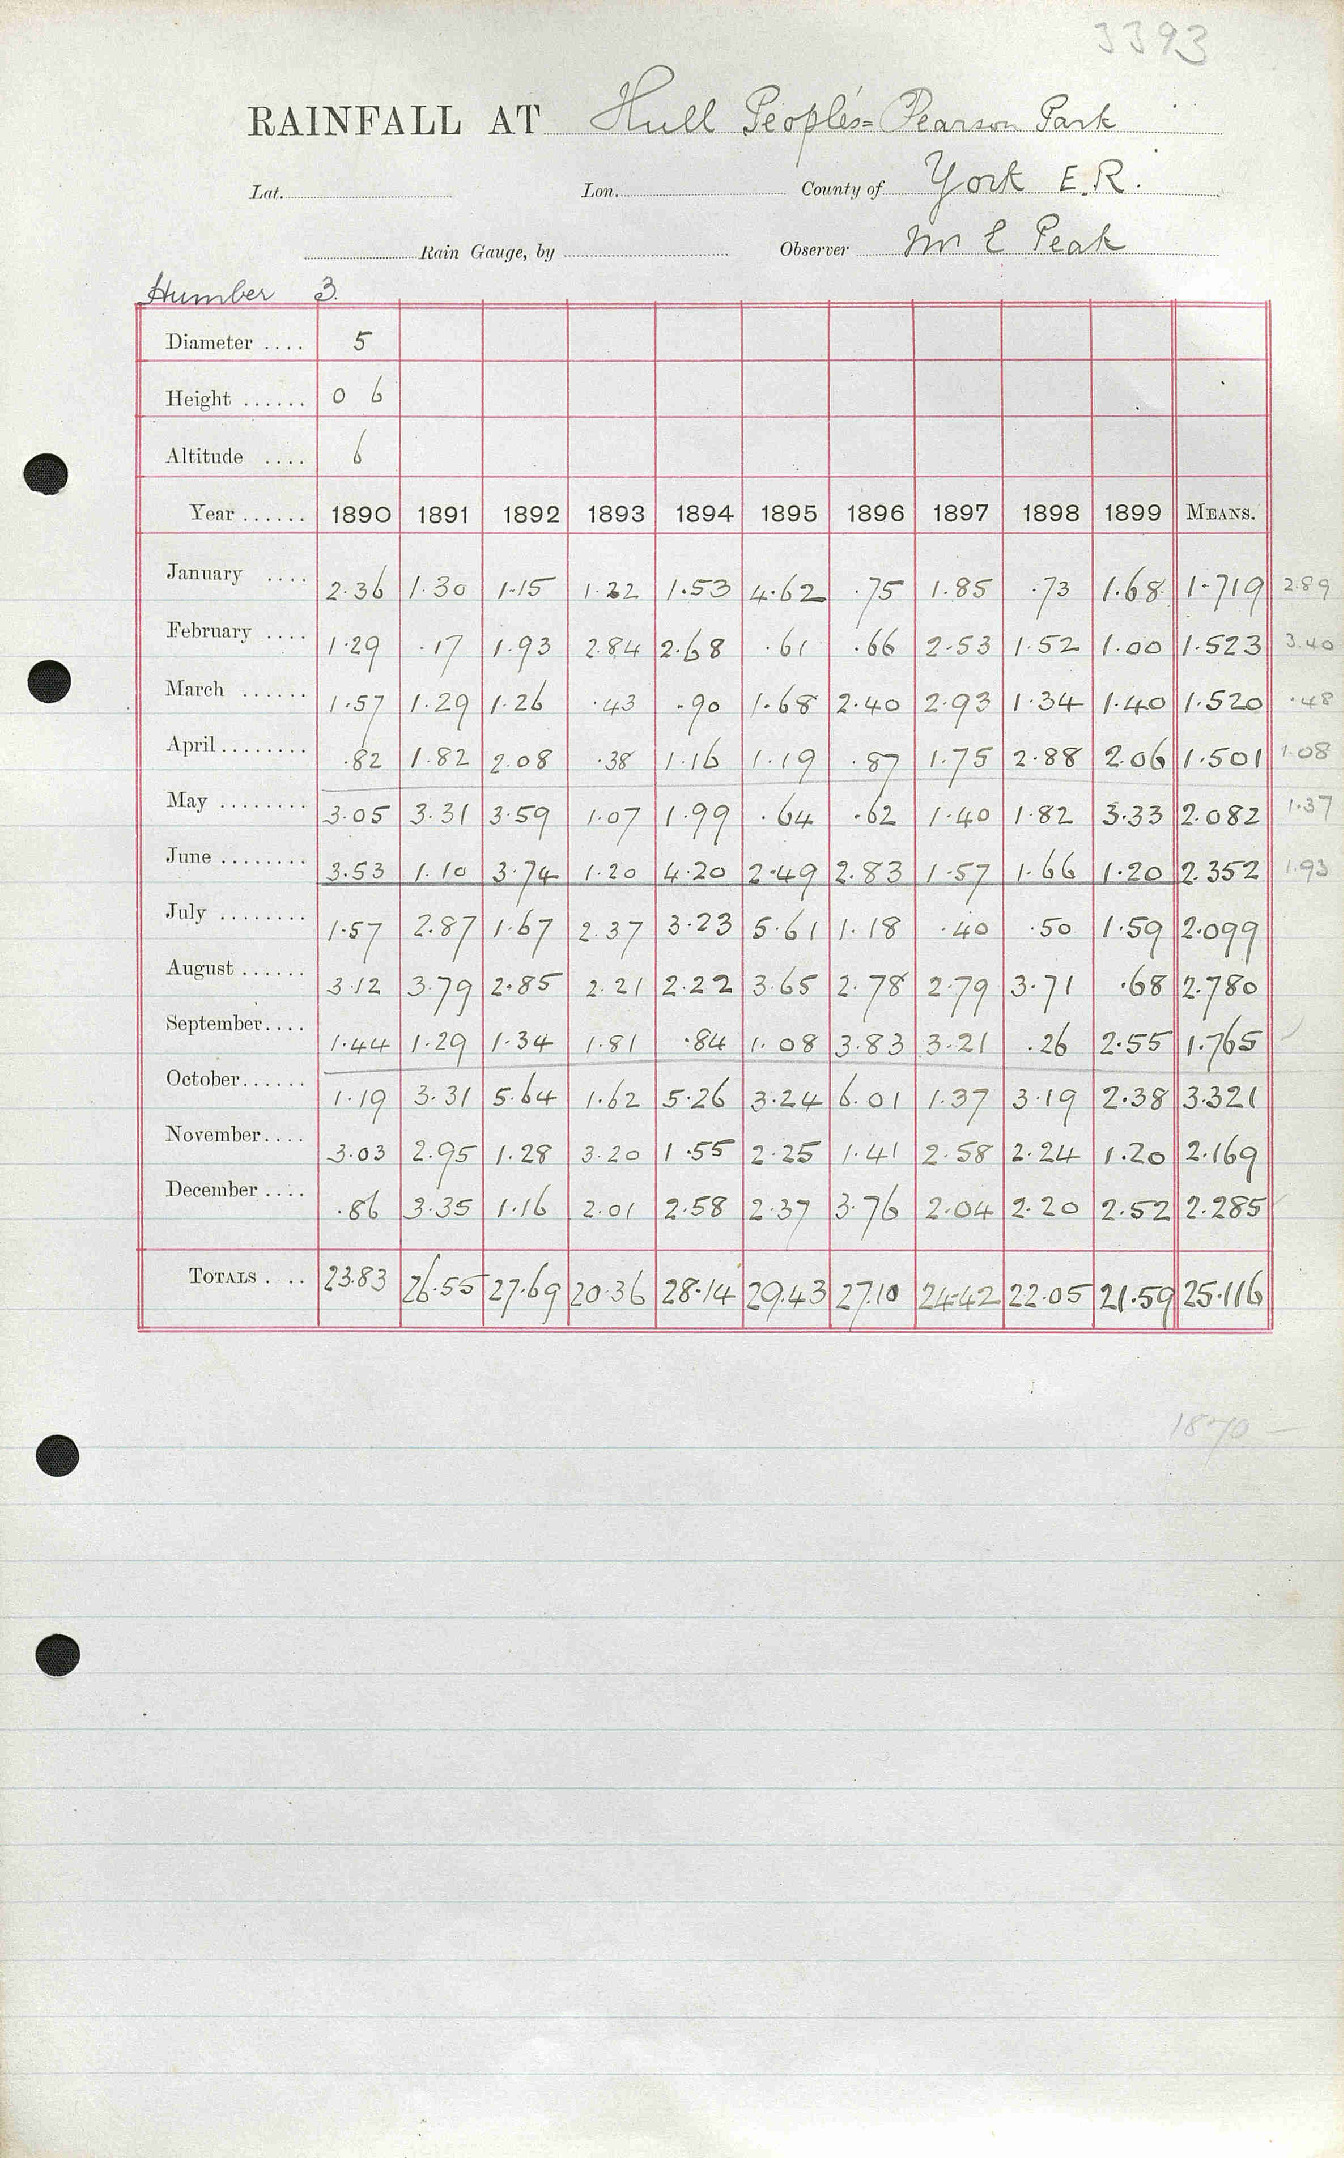 3393
RAINFALL AT Hull People's = Pearson Park
Lat. Lon. County of York E.R.
Rain Gauge, by Observer Mr E Peak
Humber 3.
Diameter .... 5
Height ...... 0 6
Altitude .... 6
Year ...... 1890 1891 1892 1893 1894 1895 1896 1897 1898 1899 MEANS.
January .... 2.36 1.30 1.15 1.22 1.53 4.62 .75 1.85 .73 1.68 1.719 2.89
February .... 1.29 .17 1.93 2.84 2.68 .61 .66 2.53 1.52 1.00 1.523 3.40
March ...... 1.57 1.29 1.26 .43 .90 1.68 2.40 2.93 1.34 1.40 1.520 .48
April ........ .82 1.82 2.08 .38 1.16 1.19 .87 1.75 2.88 2.06 1.501 1.08
May ........ 3.05 3.31 3.59 1.07 1.99 .64 .62 1.40 1.82 3.33 2.082 1.37
June ........ 3.53 1.10 3.74 1.20 4.20 2.49 2.83 1.57 1.66 1.20 2.352 1.93
July ........ 1.57 2.87 1.67 2.37 3.23 5.61 1.18 .40 .50 1.59 2.099
August ...... 3.12 3.79 2.85 2.21 2.22 3.65 2.78 2.79 3.71 .68 2.780
September .... 1.44 1.29 1.34 1.81 .84 1.08 3.83 3.21 .26 2.55 1.765
October ...... 1.19 3.31 5.64 1.62 5.26 3.24 6.01 1.37 3.19 2.38 3.321
November .... 3.03 2.95 1.28 3.20 1.55 2.25 1.41 2.58 2.24 1.20 2.169
December .... .86 3.35 1.16 2.01 2.58 2.37 3.76 2.04 2.20 2.52 2.285
TOTALS . .. 23.83 26.55 27.69 20.36 28.14 29.43 27.10 24.42 22.05 21.59 25.116
1870 –